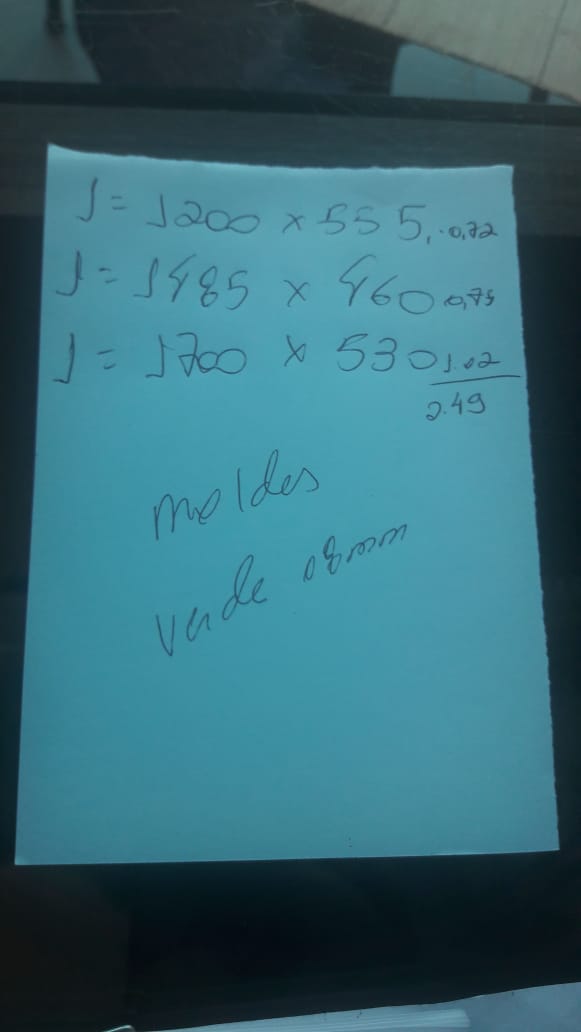 1 = 1200 x 555, 0,72
1 = 1485 x 460 0,75
1 = 1700 x 530 1.02
2.49
moldes
verde 08mm